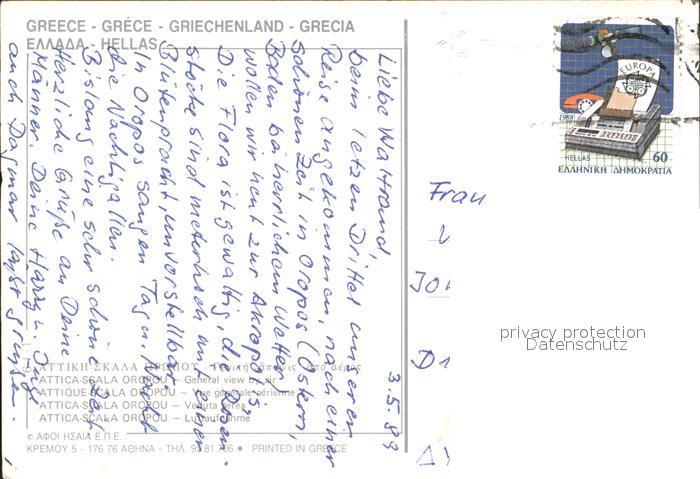 GREECE - GRÉCE - GRIECHENLAND - GRECIA
ΕΛΛΑΔΑ - HELLAS
3.5.89
Liebe Waltraud,
beim letzen Drittel unserer
Reise angekommen, nach einer
schönen Zeit in Oropos (Ostern,
Baden bei herrlichem Wetter)
wollen wir heut zur Akropolis,
Die Flora ist gewaltig, die Rosen-
stöcke sind meterhoch mit einer
Blütenpracht, unvorstellbar.
In Oropos sangen Tag u. Nacht
die Nachtigallen.
Bislang eine sehr schöne Zeit
Herzliche Grüße an Deine
Männer. Deine Harry u. Inge
auch Dagmar läßt grüßen.
ΑΤΤΙΚΗ-ΣΚΑΛΑ ΩΡΩΠΟΥ - Γενική άποψις από αέρος
ATTICA-SCALA OROPOU — General view by air
ATTIQUE-SCALA OROPOU — Vue générale aérienne
ATTICA-SCALA OROPOU — Veduta aerea
ATTICA-SCALA OROPOU — Luftaufnahme
© ΑΦΟΙ ΗΣΑΪΑ Ε.Π.Ε.
ΚΡΕΜΟΥ 5 - 176 76 ΑΘΗΝΑ - ΤΗΛ. 95.81.706 • PRINTED IN GREECE
EUROPA
1988
HELLAS 60
ΕΛΛΗΝΙΚΗ ΔΗΜΟΚΡΑΤΙΑ
Frau
privacy protection
Datenschutz